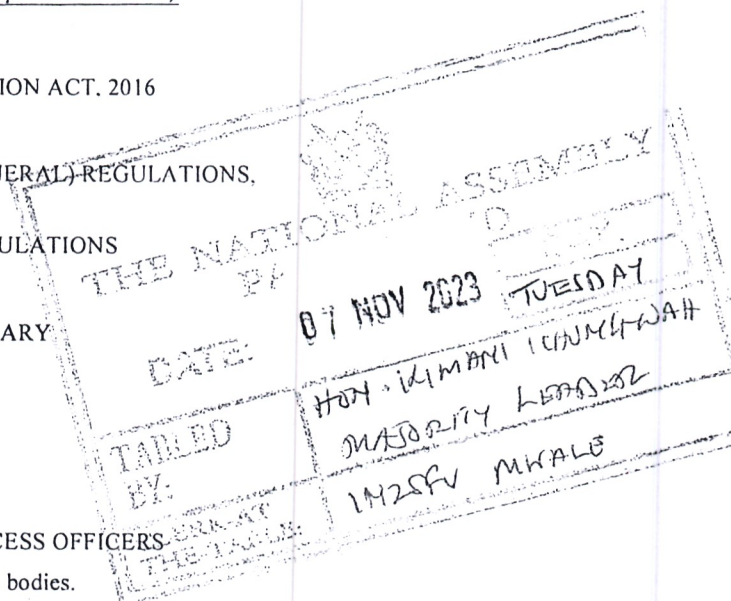 ION ACT, 2016
ERAL) REGULATIONS,
ULATIONS
ARY
CESS OFFICERS
bodies.
THE NATIONAL ASSEMBLY
DATE: 07 NOV 2023 TUESDAY
TABLED BY:
HON. KIMANI
MAJORITY LEADER
CLERK-AT THE-TABLE:
MWALE